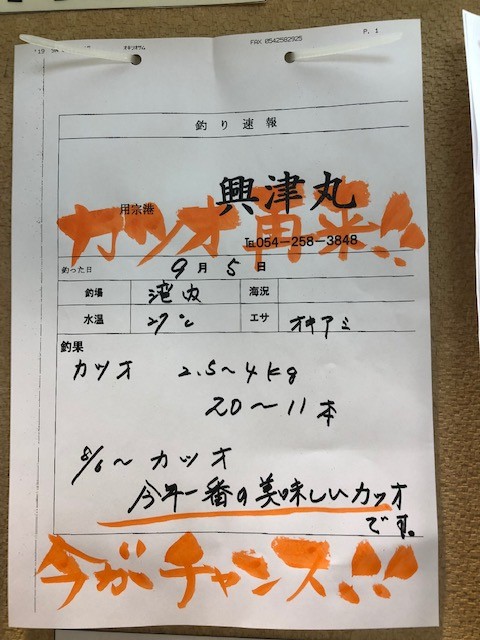 FAX 0542582925
P. 1
釣り速報
興津丸
用宗港
カツオ再来!!
℡054-258-3848
釣った日 9月5日
釣場 湾内 海況
水温 27℃ エサ オキアミ
釣果
カツオ 2.5～4kg
20～11本
8/6～カツオ
今年一番の美味しいカツオ
です。
今がチャンス!!